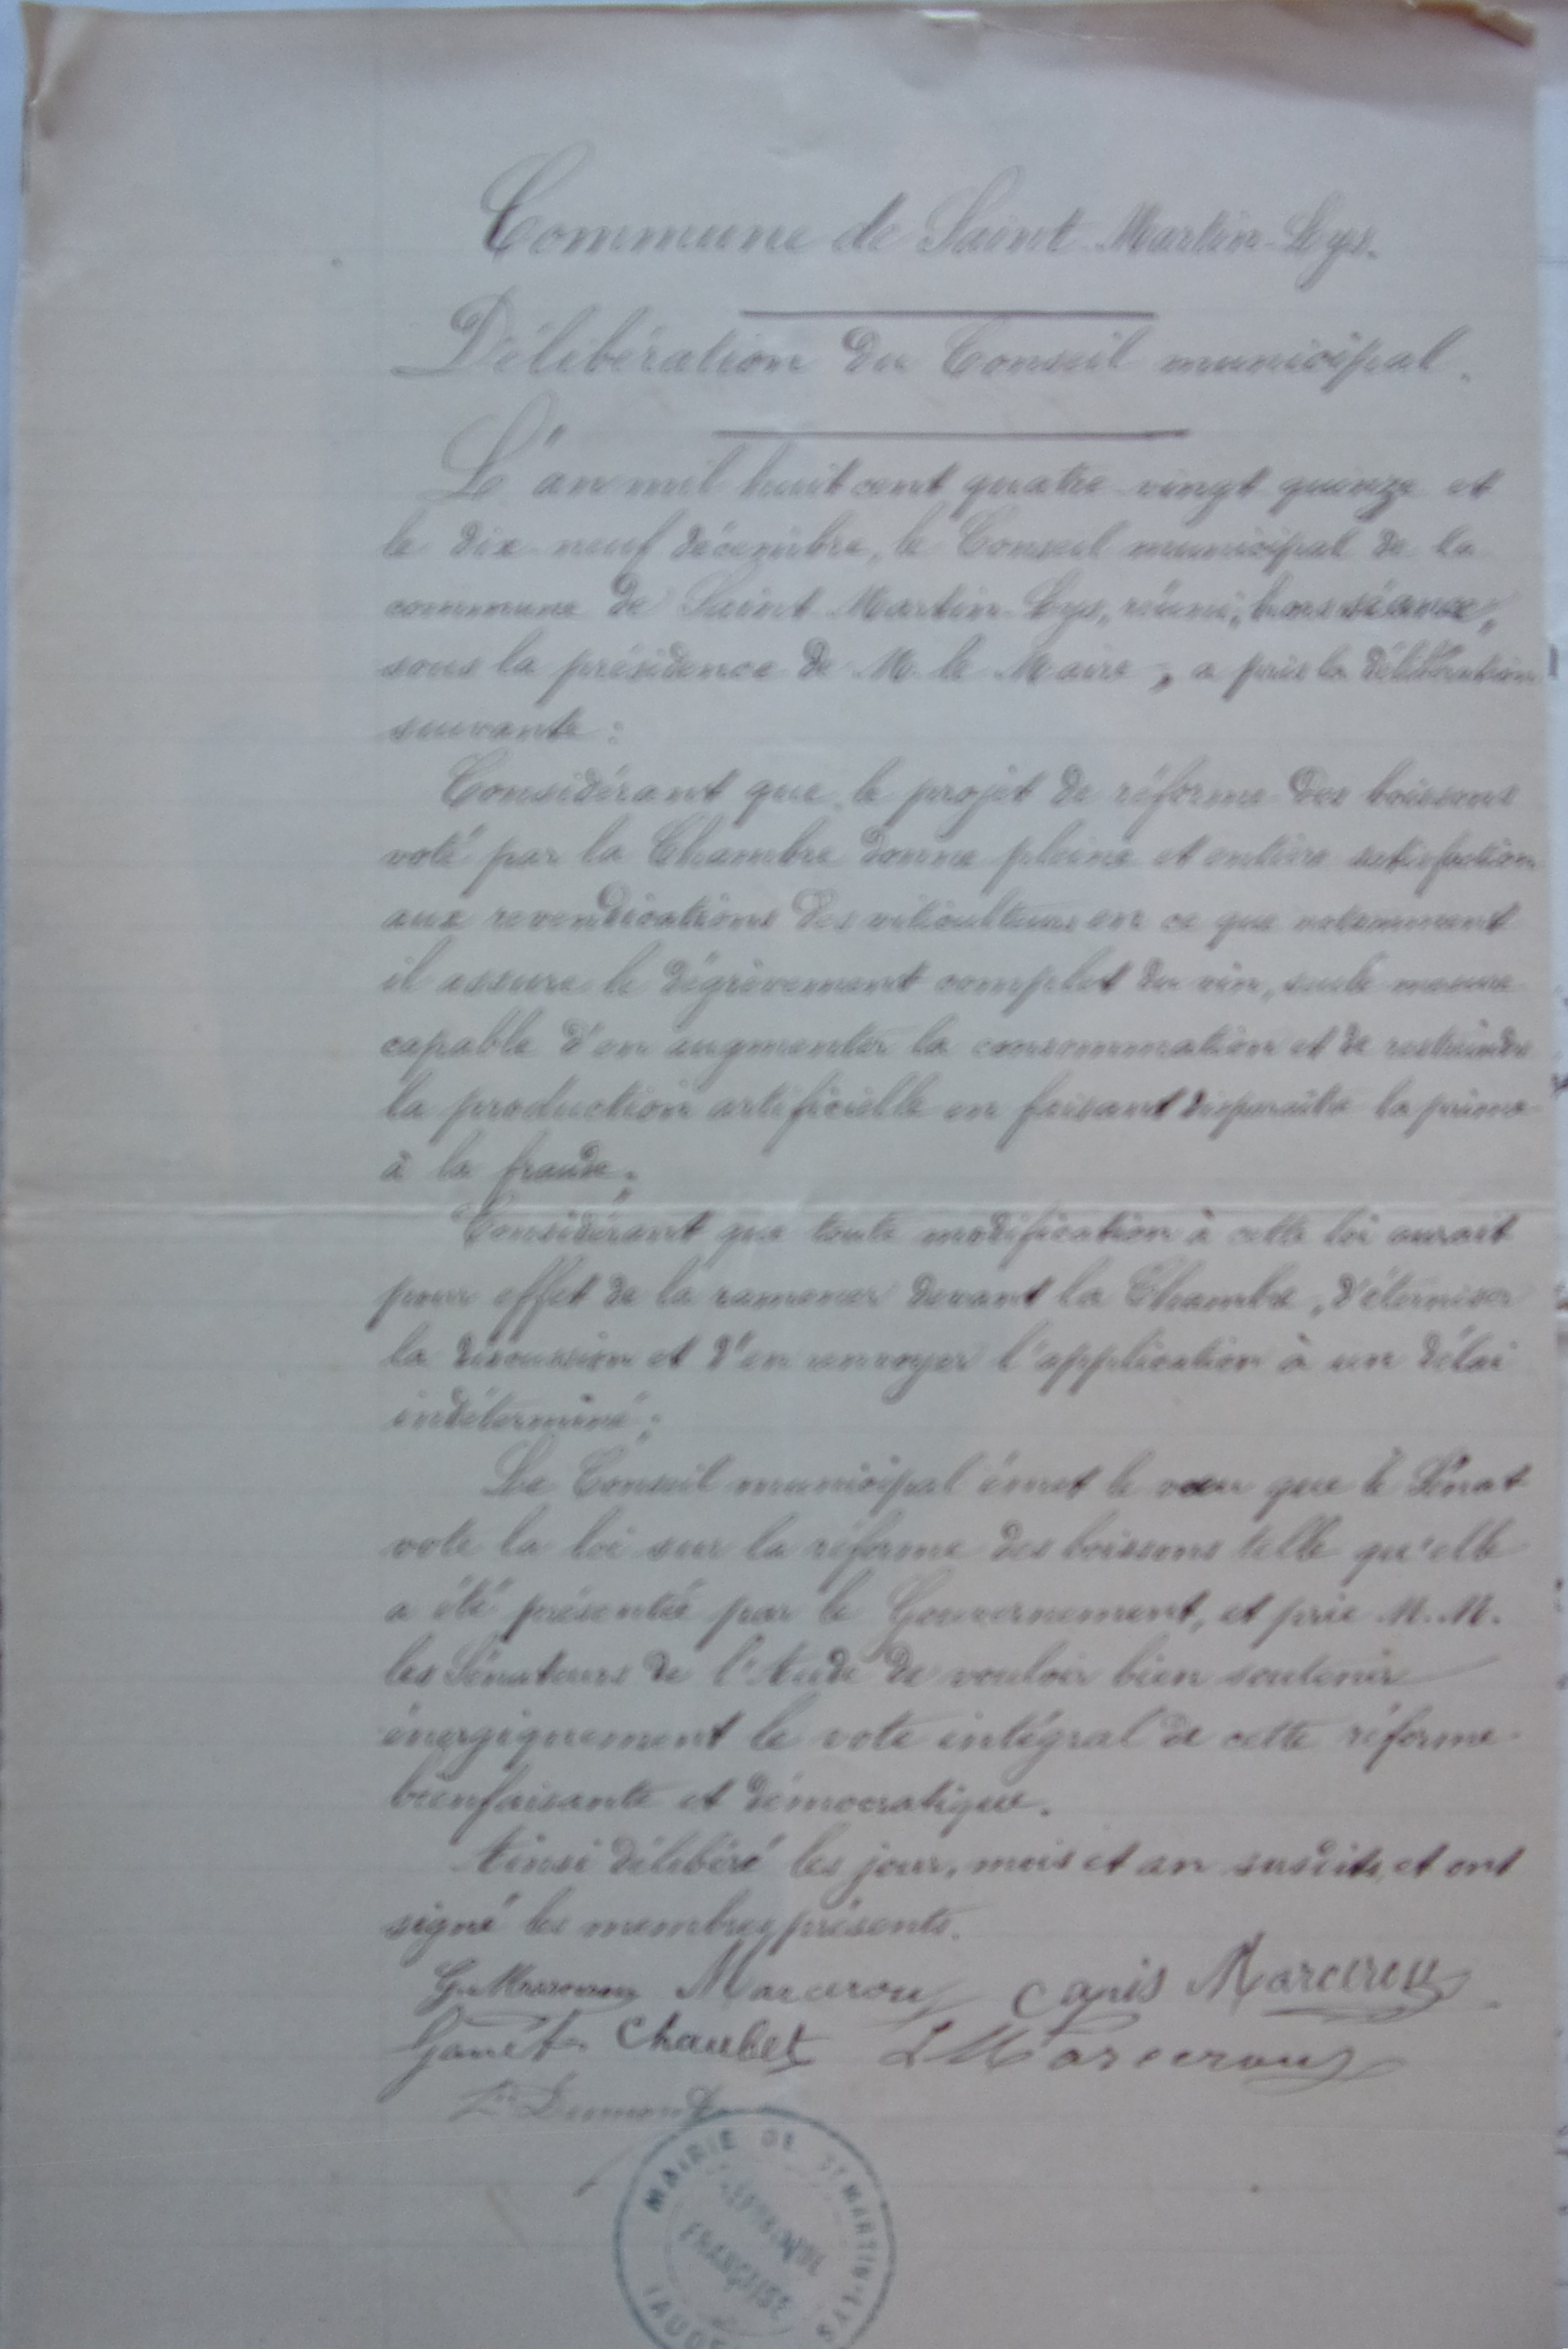 Commune de Saint Martin-Lys.
Délibération du Conseil municipal.
L'an mil huit cent quatre vingt quinze et
le dix-neuf décembre, le Conseil municipal de la
commune de Saint Martin-Lys, réuni, hors séance,
sous la présidence de M. le Maire, a pris la délibération
suivante :
Considérant que le projet de réforme des boissons
voté par la Chambre donne pleine et entière satisfaction
aux revendications des viticulteurs en ce que notamment
il assure le dégrèvement complet du vin, seule mesure
capable d'en augmenter la consommation et de restreindre
la production artificielle en faisant disparaître la prime
à la fraude ;
Considérant que toute modification à cette loi aurait
pour effet de la ramener devant la Chambre, d'éterniser
la discussion et d'en envoyer l'application à un délai
indéterminé ;
Le Conseil municipal émet le vœu que le Sénat
vote la loi sur la réforme des boissons telle qu'elle
a été présentée par le Gouvernement, et prie M.M.
les Sénateurs de l'Aude de vouloir bien soutenir
énergiquement le vote intégral de cette réforme
bienfaisante et démocratique.
Ainsi délibéré les jour, mois et an susdits, et ont
signé les membres présents.
Marcerou Capis Marcerou
Chaubet L Marcerou
MAIRIE DE ST MARTIN-LYS
RÉPUBLIQUE
FRANÇAISE
(AUDE